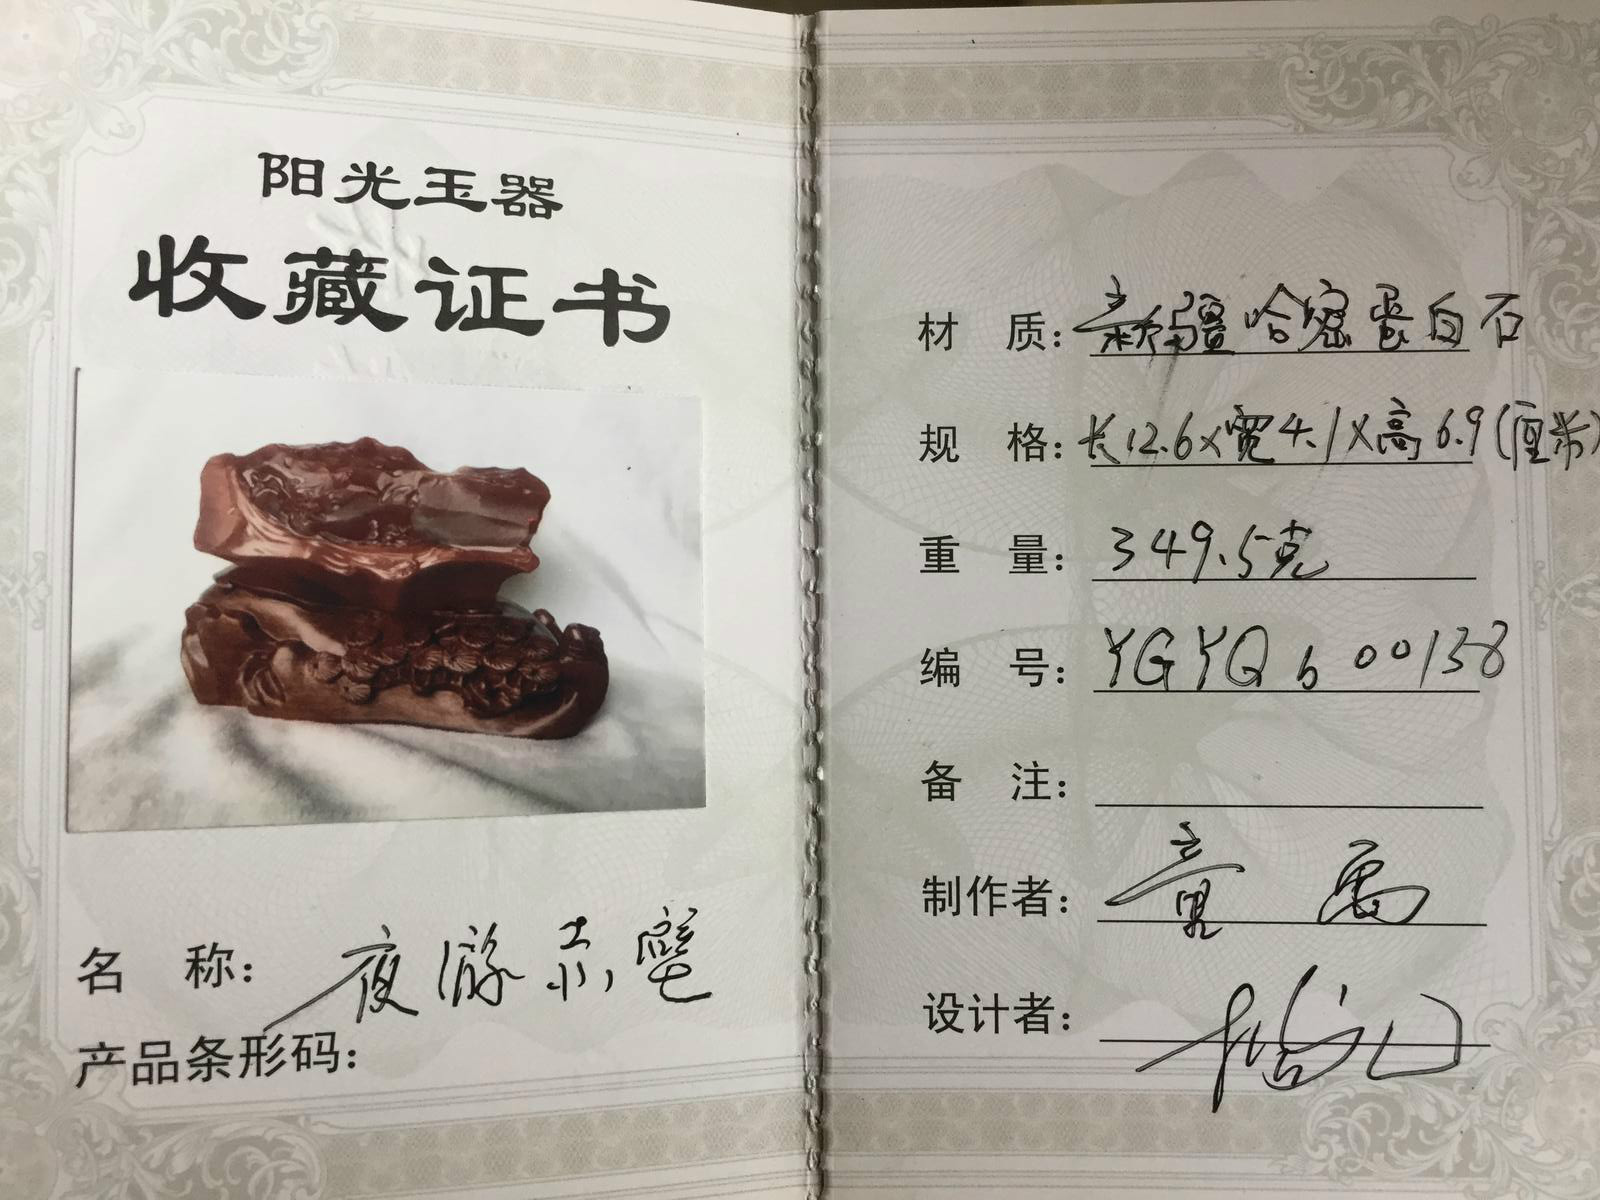 阳光玉器
收藏证书
名 称：夜游赤壁
产品条形码：
材 质：新疆哈密蛋白石
规 格：长12.6×宽4.1×高6.9（厘米）
重 量：349.5克
编 号：YGYQ600138
备 注：
制作者：童禹
设计者：